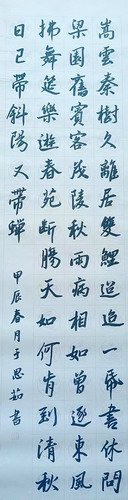 嵩雲秦樹久離居雙鯉迢迢一帋書休問
梁園舊賓客茂陵秋雨病相如曾逐東風
拂舞筵樂遊春苑斷腸天如何肯到清秋
日已帶斜陽又帶蟬
甲辰春月于思茹書